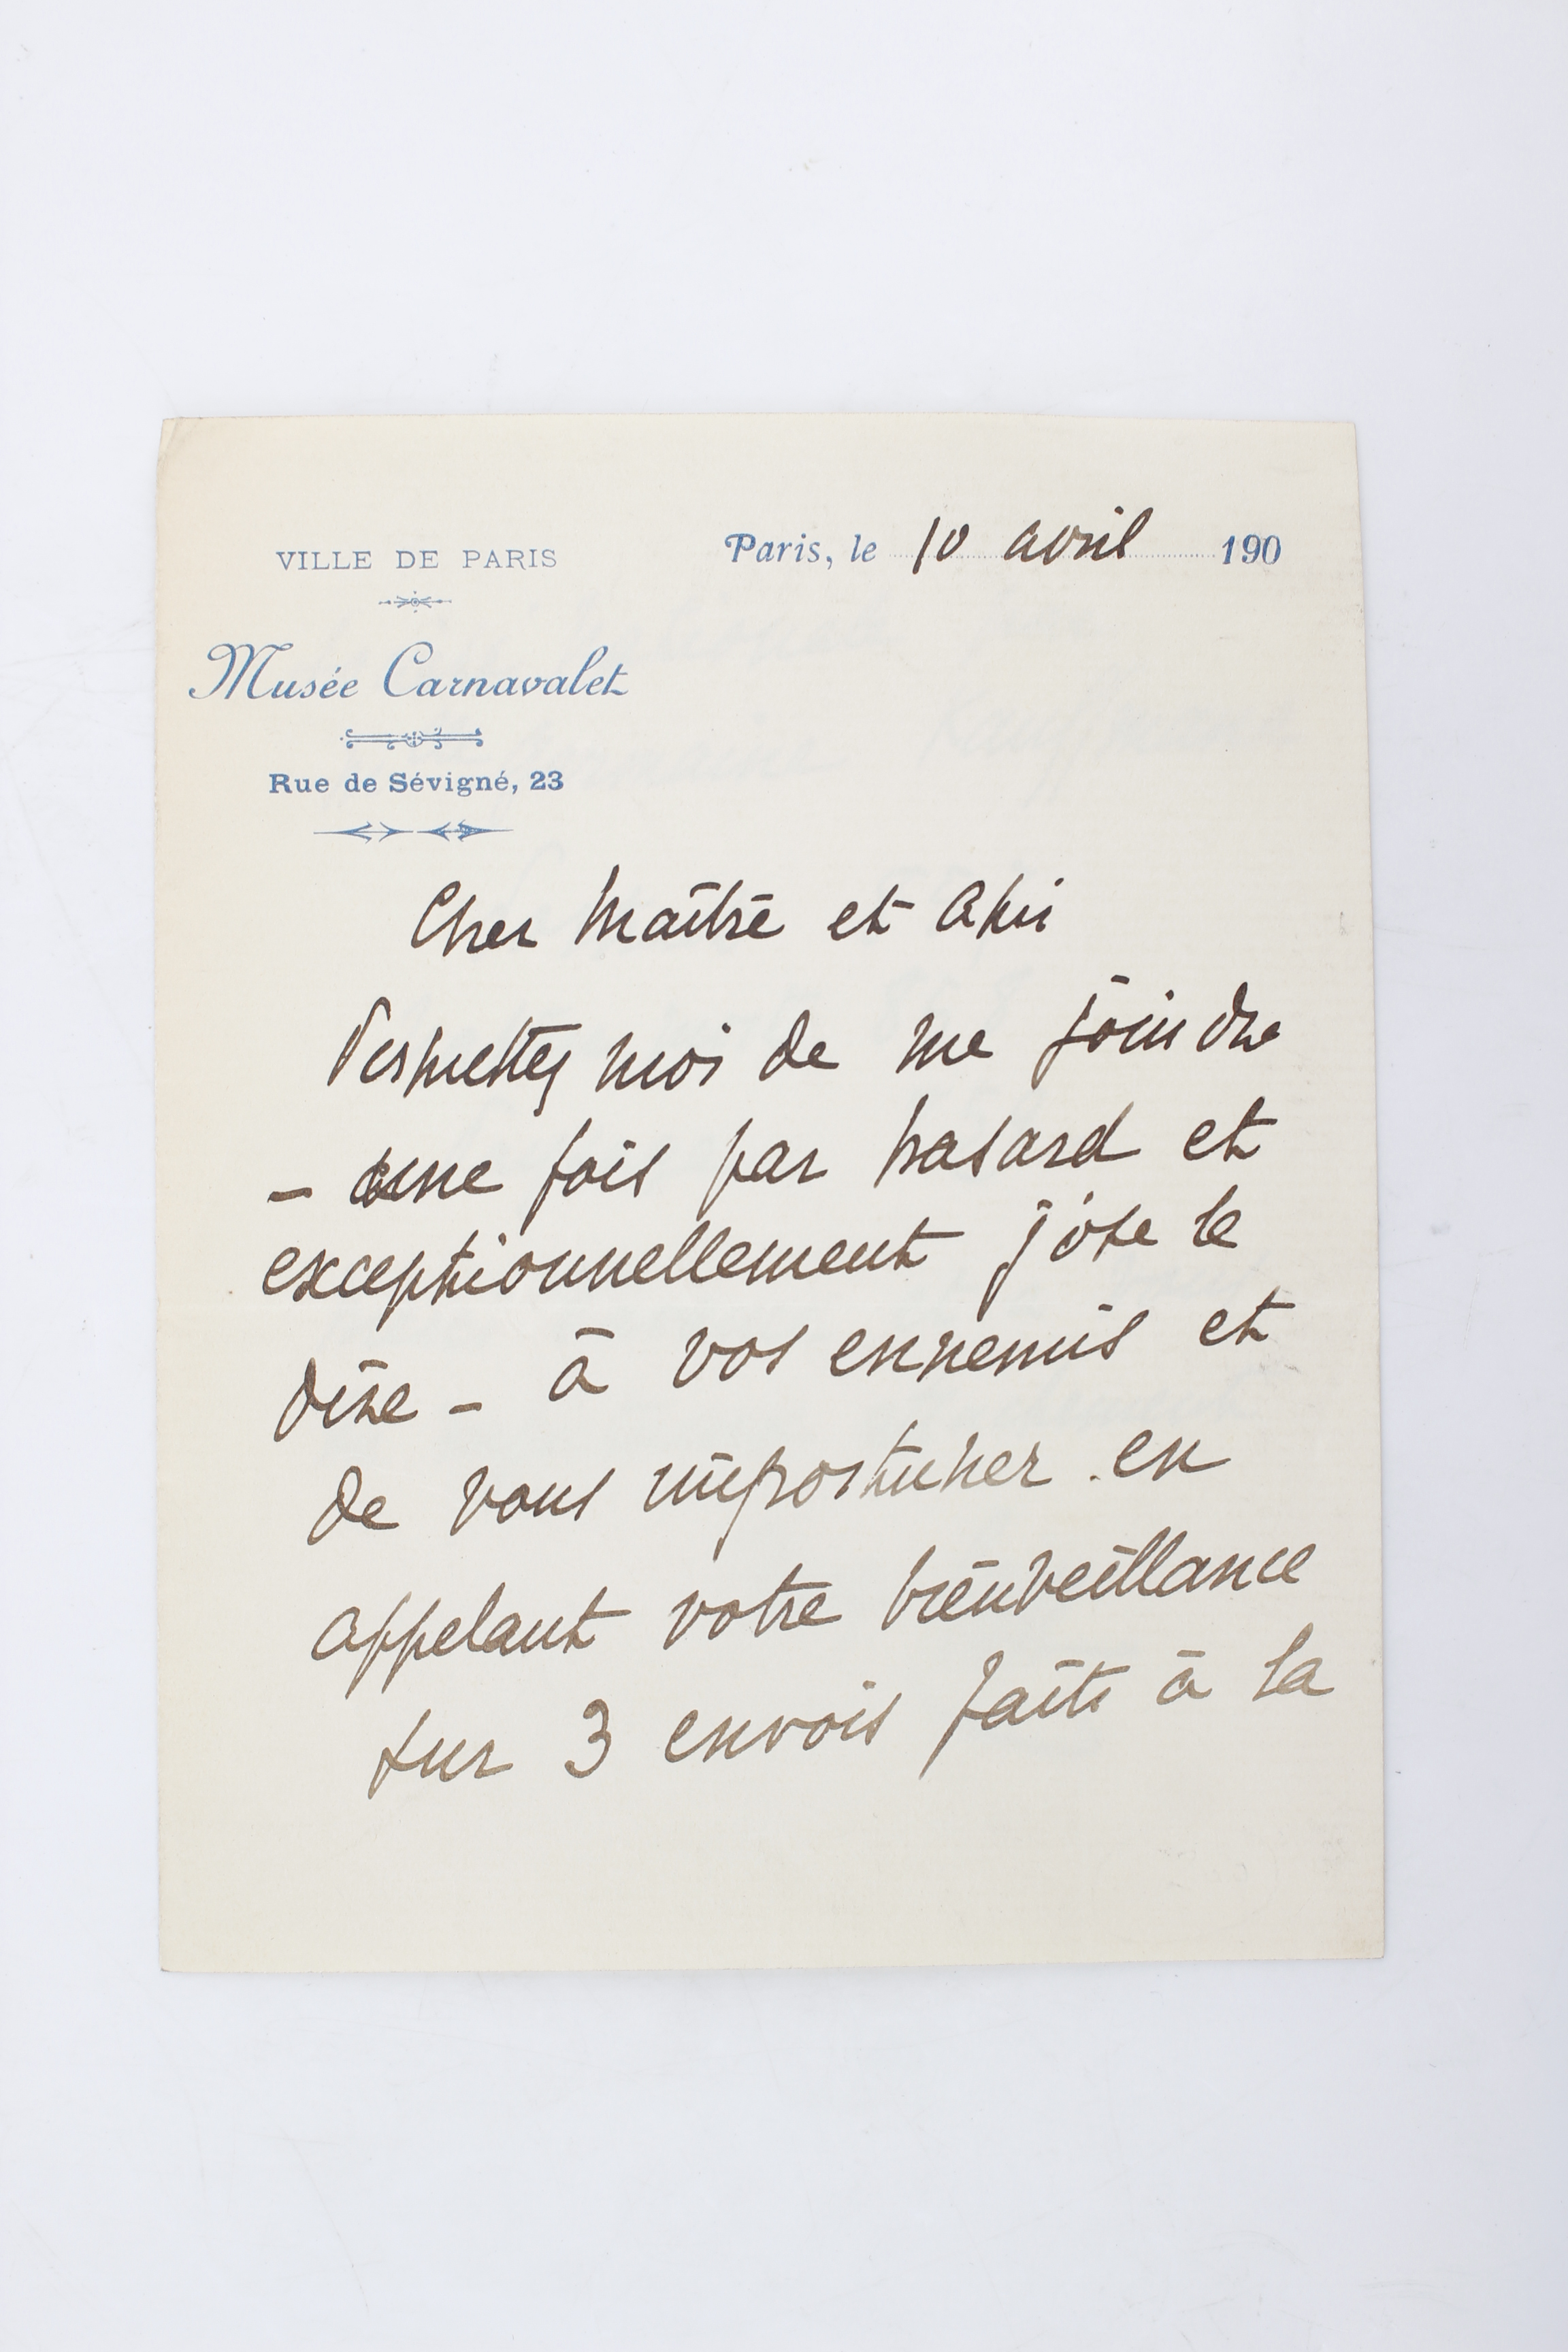 VILLE DE PARIS
Paris, le 10 avril 190
Musée Carnavalet
Rue de Sévigné, 23
Cher Maître et Ami
Permettez moi de me joindre
- une fois par hasard et
exceptionnellement j'ose le
dire - à vos ennemis et
de vous importuner en
appelant votre bienveillance
sur 3 envois faits à la